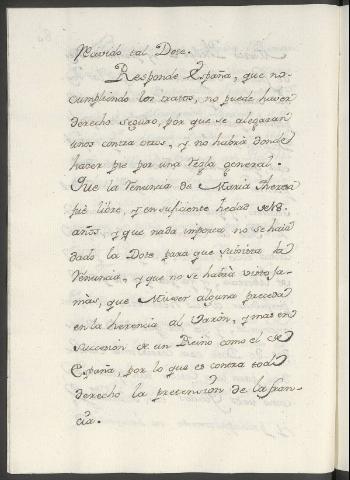 Marido tal Dote.
Responde España, que no
cumpliendo los tratos, no puede haver
derecho seguro, por que se alegaran
unos contra otros, y no habrà donde
hacer pie por una regla general.
Que la renuncia de Maria Theresa
fuè libre, y en suficiente hedad de 18.
años, y que nada importa no se haia
dado la Dote para que subsista la
renuncia, y que no se habrà visto ja-
màs, que Muger alguna preceda
en la herencia al Varòn, y mas en
succesiòn de un Reino como el de
España, por lo que es contra todo
derecho la pretensiòn de la Fran-
cia.